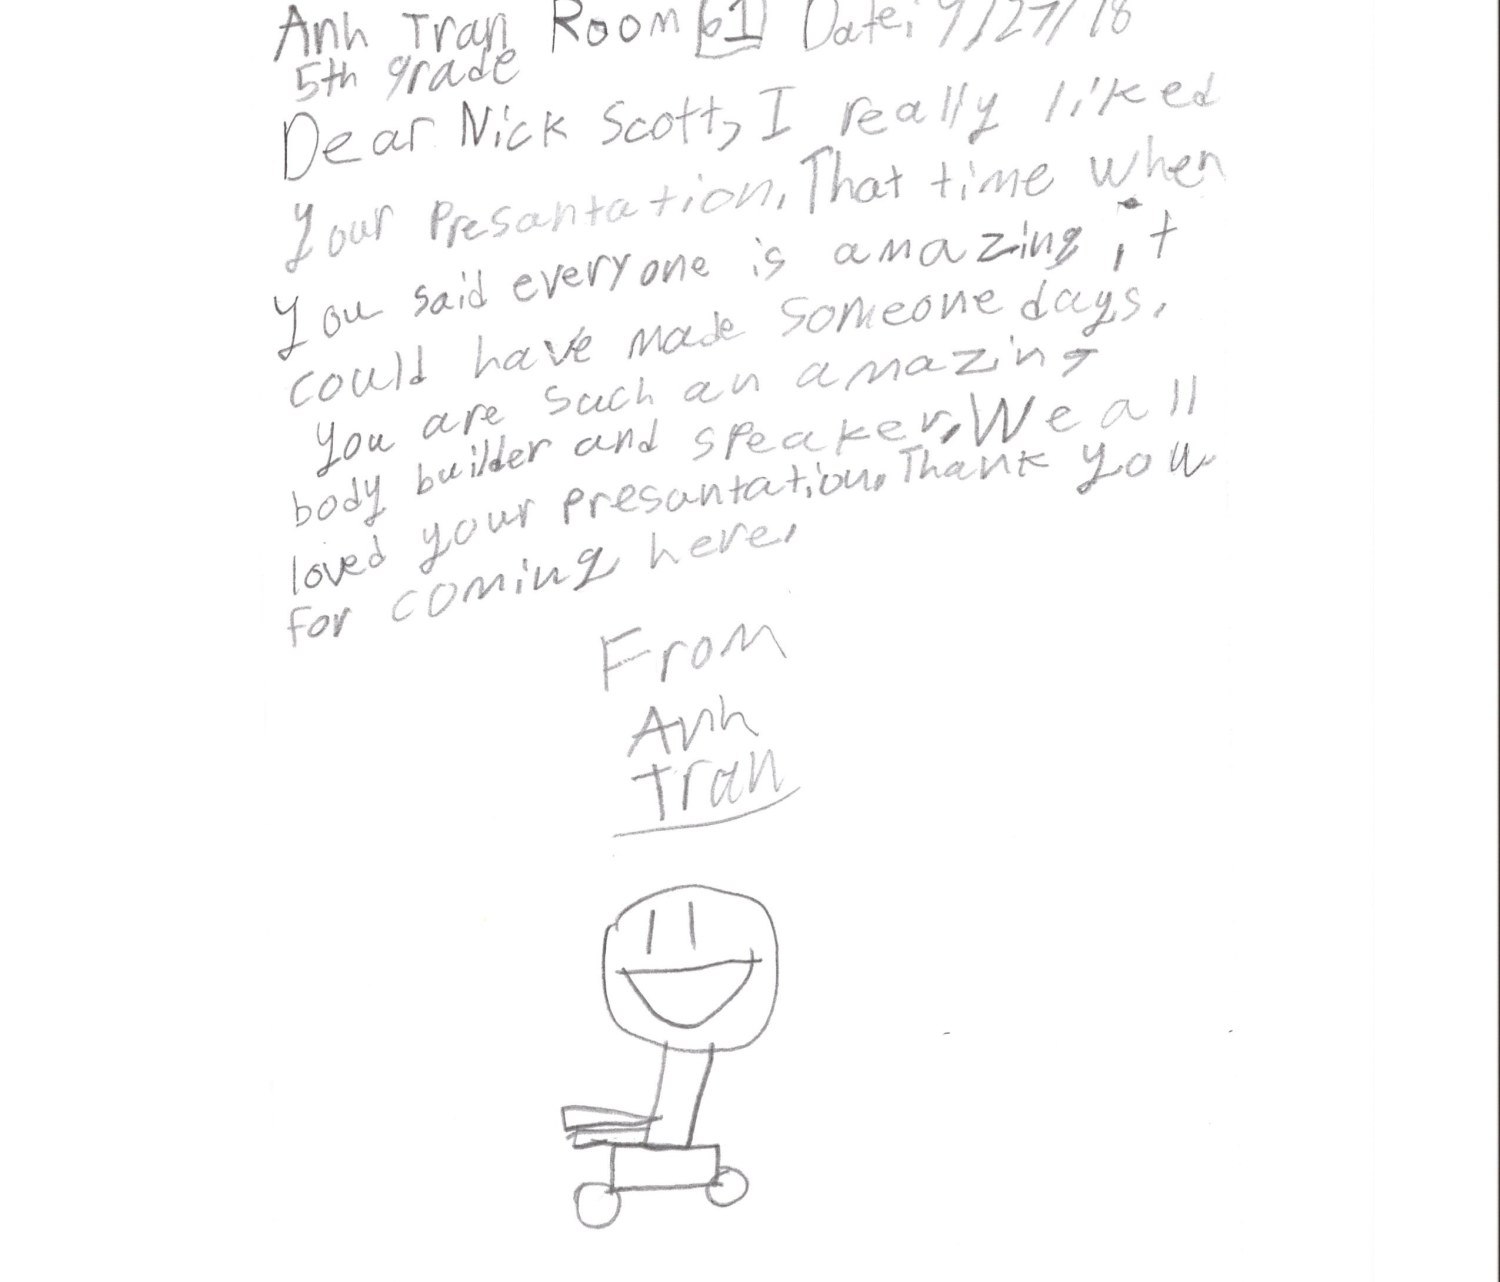 Anh Tran Room 61 Date: 9/27/18
5th grade
Dear Nick Scott, I really liked
your Presantation. That time when
you said everyone is amazing, it
could have made someone days.
You are such an amazing
body builder and speaker. We all
loved your presantation. Thank you
for coming here.
From
Anh
Tran